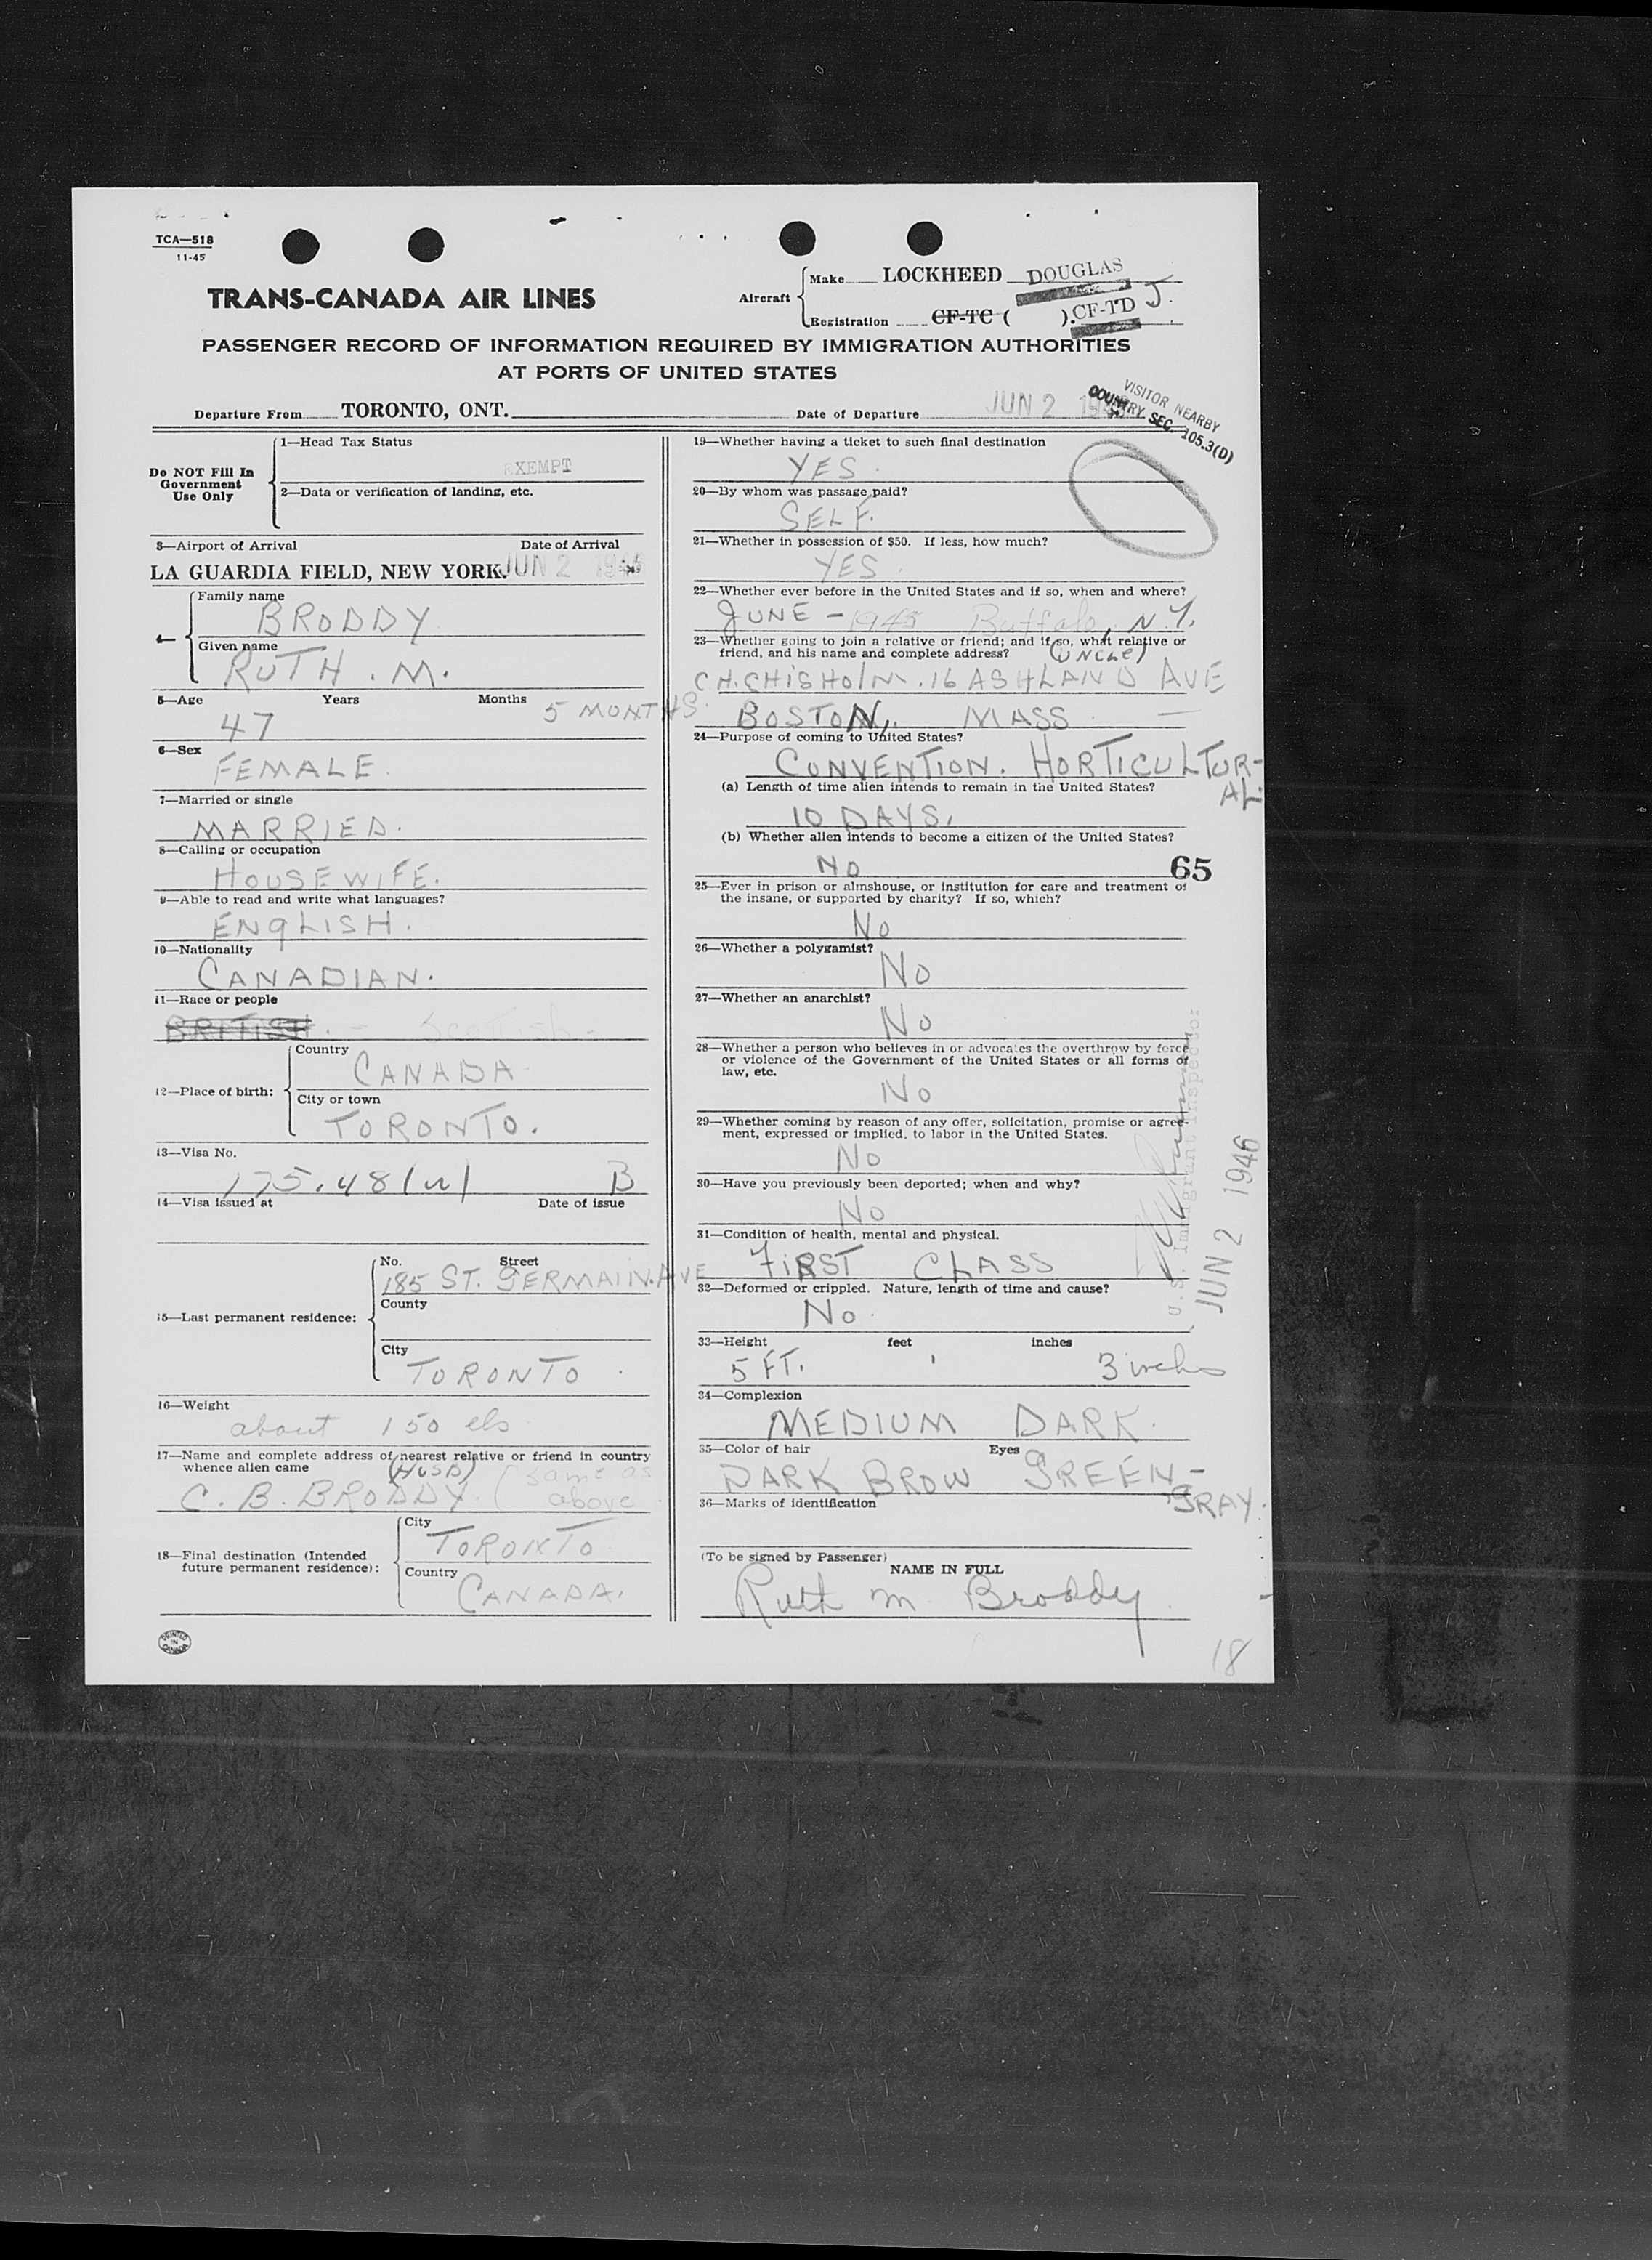 TCA—518
11-45
TRANS-CANADA AIR LINES
Aircraft
Make LOCKHEED DOUGLAS
Registration CF-TC ( ). CF-TD J
PASSENGER RECORD OF INFORMATION REQUIRED BY IMMIGRATION AUTHORITIES
AT PORTS OF UNITED STATES
Departure From TORONTO, ONT.
Date of Departure JUN 2
VISITOR NEARBY
COUNTRY SEC. 105.3(D)
Do NOT Fill In
Government
Use Only
1—Head Tax Status
EXEMPT
2—Data or verification of landing, etc.
3—Airport of Arrival Date of Arrival
LA GUARDIA FIELD, NEW YORK. JUN 2
4—
Family name
BRODDY
Given name
RUTH. M.
5—Age Years Months
47 5 MONTHS.
6—Sex
FEMALE.
7—Married or single
MARRIED.
8—Calling or occupation
HOUSEWIFE.
9—Able to read and write what languages?
ENGLISH.
10—Nationality
CANADIAN.
11—Race or people
BRITISH. - Scottish -
12—Place of birth:
Country
CANADA
City or town
TORONTO.
13—Visa No.
175.48 (u) B
14—Visa issued at Date of issue
15—Last permanent residence:
No. Street
185 ST. GERMAIN. AVE
County
City
TORONTO.
16—Weight
about 150 lbs
17—Name and complete address of nearest relative or friend in country
whence alien came
(HUSB)
C. B. BRODDY. (same as
above
18—Final destination (Intended
future permanent residence):
City
TORONTO
Country
CANADA.
PRINTED
IN
CANADA
19—Whether having a ticket to such final destination
YES.
20—By whom was passage paid?
SELF.
21—Whether in possession of $50. If less, how much?
YES.
22—Whether ever before in the United States and if so, when and where?
JUNE - 1945 Buffalo, N.Y.
23—Whether going to join a relative or friend; and if so, what relative or
friend, and his name and complete address?
(UNCLE)
C H. CHISHOLM. 16 ASHLAND AVE
BOSTON, MASS. —
24—Purpose of coming to United States?
CONVENTION. HORTICULTUR-
AL.
(a) Length of time alien intends to remain in the United States?
10 DAYS.
(b) Whether alien intends to become a citizen of the United States?
NO
65
25—Ever in prison or almshouse, or institution for care and treatment of
the insane, or supported by charity? If so, which?
No
26—Whether a polygamist?
No
27—Whether an anarchist?
No
28—Whether a person who believes in or advocates the overthrow by force
or violence of the Government of the United States or all forms of
law, etc.
No
29—Whether coming by reason of any offer, solicitation, promise or agree-
ment, expressed or implied, to labor in the United States.
No
30—Have you previously been deported; when and why?
No
31—Condition of health, mental and physical.
FIRST CLASS
32—Deformed or crippled. Nature, length of time and cause?
No.
33—Height feet inches
5 FT. 3 inches
34—Complexion
MEDIUM DARK.
35—Color of hair Eyes
DARK BROW GREEN -
GRAY.
36—Marks of identification
(To be signed by Passenger)
NAME IN FULL
Ruth M Broddy
U.S. Immigrant Inspector
JUN 2 1946
18